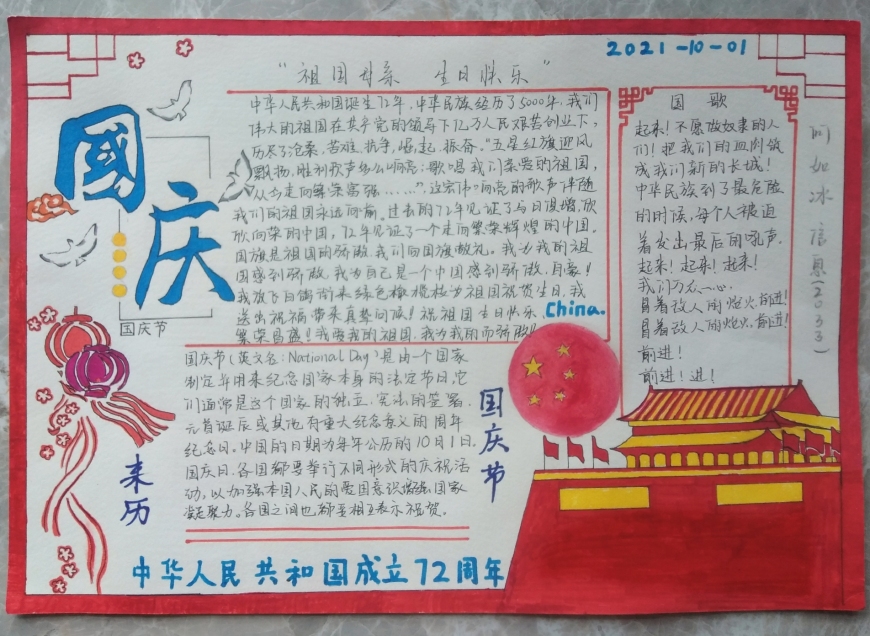 2021-10-01
"祖国母亲 生日快乐"
中华人民共和国诞生72年,中华民族经历了5000年,我们
伟大的祖国在共产党的领导下亿万人民艰苦创业下,
历尽了沧桑,苦难,抗争,崛起,振奋。"五星红旗迎风
飘扬,胜利歌声多么响亮;歌唱我们亲爱的祖国,
从今走向繁荣富强……",这宏伟 响亮的歌声伴随
我们的祖国永远向前。过去的72年见证了与日俱增,欣
欣向荣的中国,72年见证了一个走向繁荣辉煌的中国。
国旗是祖国的骄傲,我们向国旗敬礼。我为我的祖
国感到骄傲,我为自己是一个中国感到骄傲,自豪!
我放飞白鸽衔来绿色橄榄枝为祖国祝贺生日,我
送出祝福带来真挚问候!祝祖国生日快乐、
繁荣昌盛!我爱我的祖国,我为我的而骄傲!
China.
國庆
国庆节
国庆节(英文名:National Day)是由一个国家
制定年用来纪念国家本身的法定节日,它
们通常是这个国家的独立,宪法的签署,
元首诞辰或其他有重大纪念意义的周年
纪念日。中国的日期为每年公历的10月1日,
国庆日,各国都要举行不同形式的庆祝活
动,以加强本国人民的爱国意识,增强国家
凝聚力。各国之间也都要相互表示祝贺。
国庆节
来历
国 歌
起来!不愿做奴隶的人
们!把我们的血肉筑
成我们新的长城!
中华民族到了最危险
的时候,每个人被迫
着发出最后的吼声,
起来!起来!起来!
我们万众一心,
冒着敌人的炮火,前进!
冒着敌人的炮火,前进!
前进!
前进!进!
(2033)
中华人民共和国成立72周年